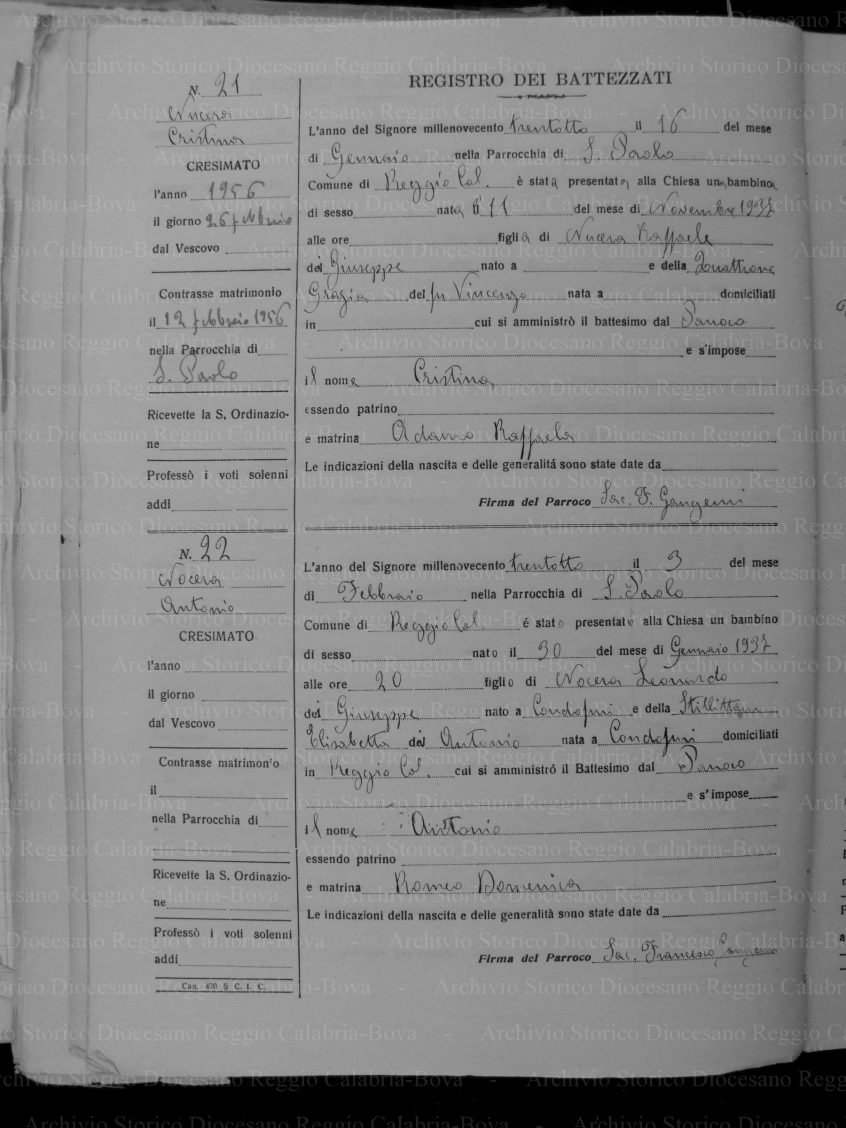 Archivio Storico Diocesano Reggio Calabria-Bova
REGISTRO DEI BATTEZZATI
N. 21
Nucera
Cristina
CRESIMATO
l'anno 1956
il giorno 26 febbraio
dal Vescovo
Contrasse matrimonio
il 12 febbraio 1956
nella Parrocchia di
S. Paolo
Ricevette la S, Ordinazio-
ne
Professò i voti solenni
addì
L'anno del Signore millenovecento trentotto il 16 del mese
di Gennaio nella Parrocchia di S. Paolo
Comune di Reggio Cal. è stata presentata alla Chiesa una bambina
di sesso nata il 11 del mese di Novembre 1937
alle ore figlia di Nucera Raffaele
del Giuseppe nato a e della Quattrone
Grazia del fu Vincenzo nata a domiciliati
in cui si amministrò il battesimo dal Parroco
e s'impose
il nome Cristina
essendo patrino
e matrina Adamo Raffaela
Le indicazioni della nascita e delle generalitá sono state date da
Firma del Parroco Sac. F. Gangemi
N. 22
Nocera
Antonio
CRESIMATO
l'anno
il giorno
dal Vescovo
Contrasse matrimonio
il
nella Parrocchia di
Ricevette la S. Ordinazio-
ne
Professò i voti solenni
addì
Can. 470 § C. I. C.
L'anno del Signore millenovecento trentotto il 3 del mese
di Febbraio nella Parrocchia di S. Paolo
Comune di Reggio Cal. é stato presentato alla Chiesa un bambino
di sesso nato il 30 del mese di Gennaio 1937
alle ore 20 figlio di Nocera Leonardo
del Giuseppe nato a Condofuri e della Stillittano
Elisabetta del Antonio nata a Condofuri domiciliati
in Reggio Cal. cui si amministró il Battesimo dal Parroco
e s'impose
il nome Antonio
essendo patrino
e matrina Romeo Domenica
Le indicazioni della nascita e delle generalità sono state date da
Firma del Parroco Sac. Francesco Gangemi